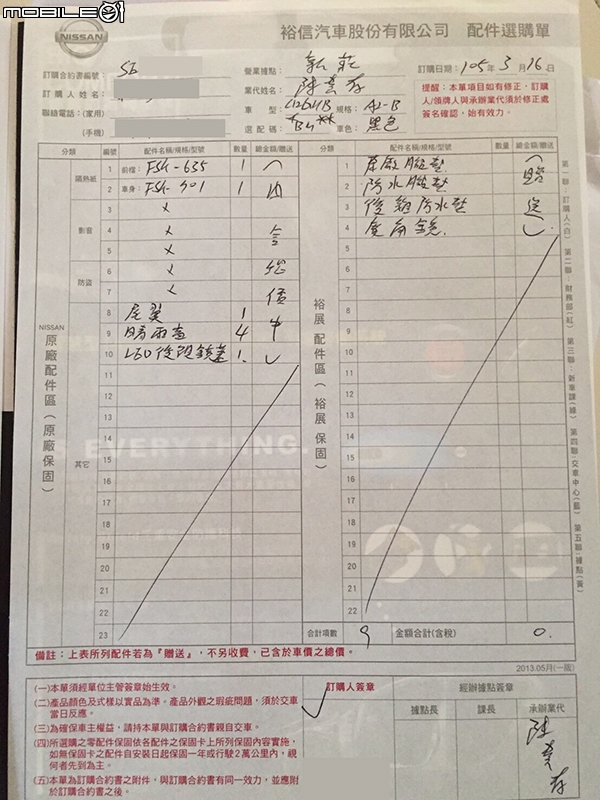 mobile01
NISSAN
裕信汽車股份有限公司 配件選購單
訂購合約書編號:
營業據點: 新莊
訂購日期: 105年 3月 16日
訂購人姓名:
業代姓名:
聯絡電話:(家用)
車 型: 規格: A2-B
(手機)
選配碼: 車色: 黑色
提醒:本單項目如有修正,訂購
人/領牌人與承辦業代須於修正處
簽名確認,始有效力。
分類 編號 配件名稱/規格/型號 數量 總金額/贈送
隔熱紙
1 前檔: FSK-635 1
2 車身: FSK-901 1 內
影音
3 x
4 x 含
5 x
防盜
6 x 總
7 x 價
其它
8 尾翼 1
9 晴雨窗 4 中
10 LED後視鏡蓋 1
11
12
13
14
15
16
17
18
19
20
21
22
23
NISSAN 原廠配件區(原廠保固)
分類 編號 配件名稱/規格/型號 數量 總金額/贈送
1 原廠腳墊
2 防水腳墊 贈
3 後箱防水墊 送
4 廣角鏡
5
6
7
8
9
10
11
12
13
14
15
16
17
18
19
20
21
22
裕展配件區(裕展保固)
合計項數 9 金額合計(含稅) 0.
第一聯:訂購人(白) 第二聯:財務部(紅) 第三聯:配件專櫃(黃) 第四聯:交車中心(藍) 第五聯:據點(黃)
備註:上表所列配件若為『贈送』,不另收費,已含於車價之總價。
2013.05月(一版)
(一)本單須經單位主管簽章始生效。
(二)產品顏色及式樣以實品為準。產品外觀之瑕疵問題,須於交車
當日反應。
(三)為確保車主權益,請持本單與訂購合約書親自交車。
(四)所選購之零配件保固依各配件之保固卡上所列保固內容實施,
如無保固卡之配件自安裝日起保固一年或行駛2萬公里內,視
何者先到為主。
(五)本單為訂購合約書之附件,與訂購合約書有同一效力,並應附
於訂購合約書之後。
訂購人簽章
經辦據點簽章
據點長 課長 承辦業代